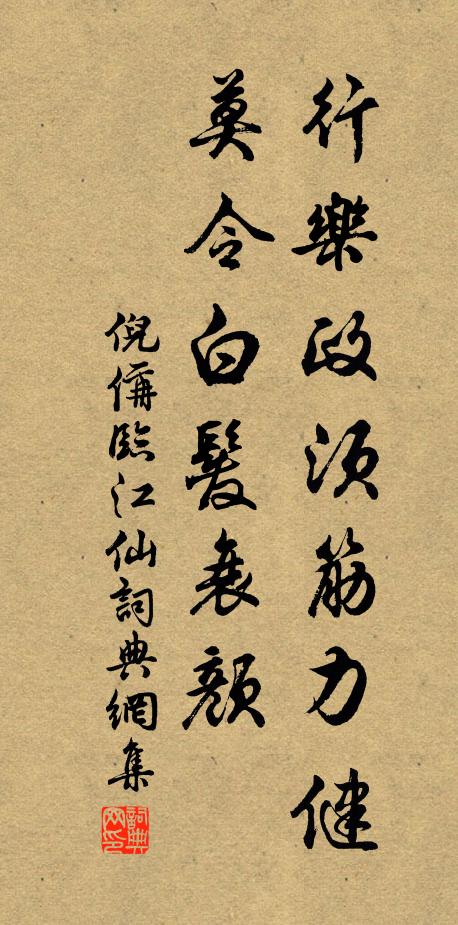 行樂政須筋力健
莫令白髮衰顏
倪偁臨江仙詞典網集
詞典網印